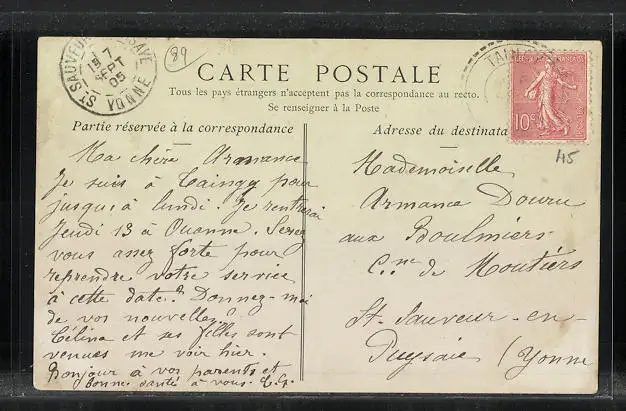 ST SAUVEUR EN PUISAYE
15 7
SEPT
05
YONNE
89
CARTE POSTALE
TAIN
Tous les pays étrangers n'acceptent pas la correspondance au recto.
Se renseigner à la Poste
10c
45
Partie réservée à la correspondance
Ma chère Armance
Je suis à Taingy pour
jusqu'à lundi. Je rentrerai
Jeudi 13 à Ouanne. Serez
vous assez forte pour
reprendre votre service
à cette date? Donnez-moi
de vos nouvelles.
Célina et ses filles sont
venues me voir hier.
Bonjour à vos parents et
bonne santé à vous.
Adresse du destinata
Mademoiselle
Armance
aux Boulmiers
Cne de Moutiers
St. Sauveur-en-
Puysaie (Yonne